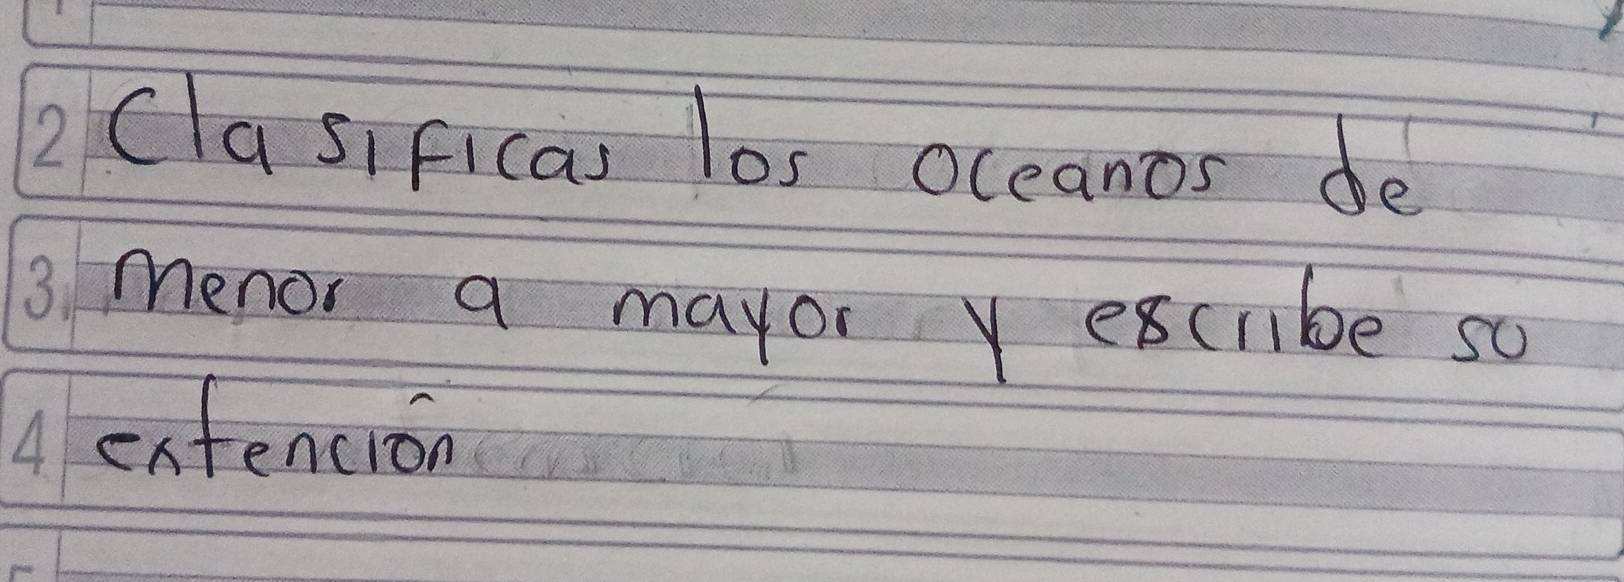 2 Clasificas los oceanos de
3. menor a mayor y escribe so
4. extención